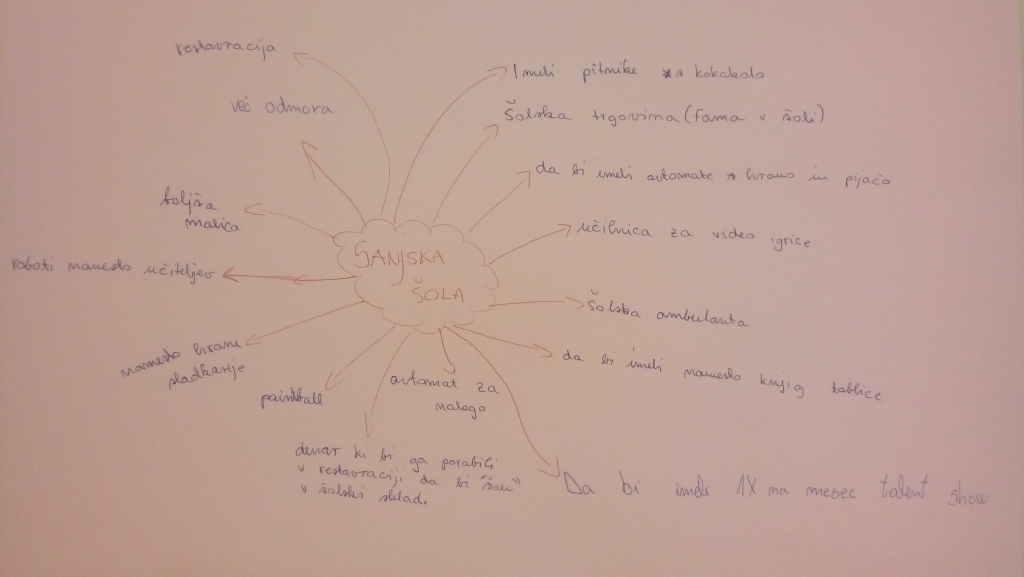 restavracija
več odmora
boljša
malica
roboti namesto učiteljev
namesto hrane
sladkarije
paintball
avtomat za
nalogo
denar ki bi ga porabili
v restavraciji da bi "šou"
v šolski sklad.
SANJSKA
ŠOLA
Imeli pitnike s kokakolo
Šolska trgovina (fama v šoli)
da bi imeli avtomate s hrano in pijačo
učilnica za video igrice
šolska ambulanta
da bi imeli namesto knjig tablice
Da bi imeli 1X na mesec talent show